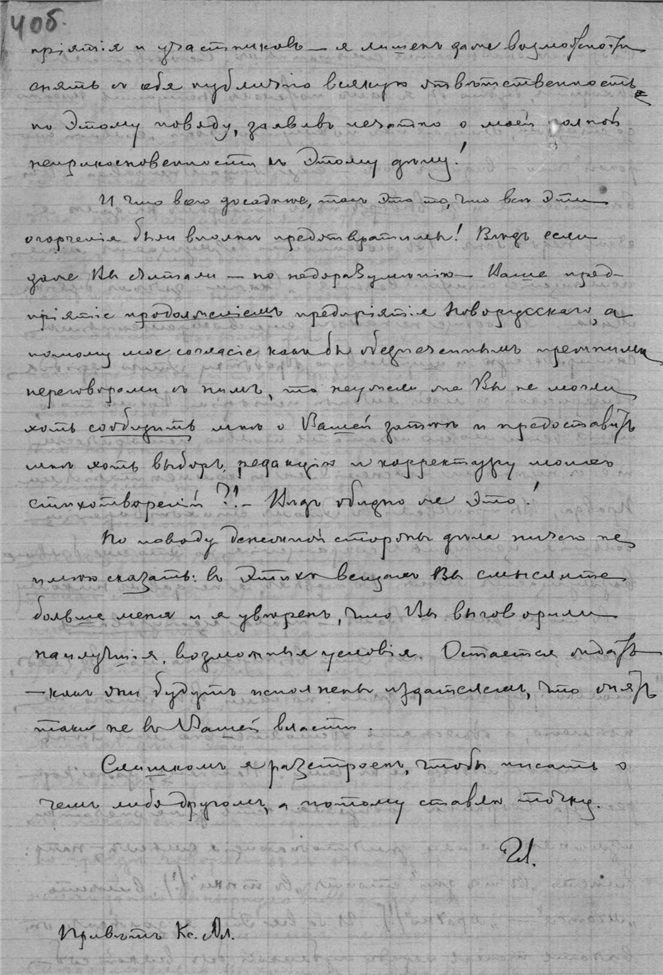 40б.
пріятія и участниковъ — я лишенъ даже возможности
снять съ себя публично всякую отвѣтственность
по этому поводу, заявивъ печатно о моей полной
неприкосновенности къ этому дѣлу!
И что всего досаднѣе, такъ это то, что всѣ эти
огорченія были вполнѣ предотвратимы! Вѣдь если
даже Вы считали — по недоразумѣнію — Ваше пред-
пріятіе продолженіемъ предпріятія Новорусскаго, а
потому мое согласіе какъ бы обезпеченнымъ прежними
переговорами съ нимъ, то неужели же Вы не могли
хоть сообщить мнѣ о Вашей затѣѣ и предоставить
мнѣ хоть выборъ, редакцію и корректуру моихъ
стихотвореній?! — Вѣдь обидно же это!
По поводу денежной стороны дѣла ничего не
имѣю сказать: въ этихъ вещахъ Вы смыслите
больше меня и я увѣренъ, что Вы выговорили
наилучшія возможныя условія. Остается ждать
— какъ они будутъ исполнены издателемъ, что опять
таки не въ Вашей власти.
Слишкомъ я разстроенъ, чтобы писать о
чемъ либо другомъ, а потому ставлю точку.
Привѣтъ Кс. Ал.